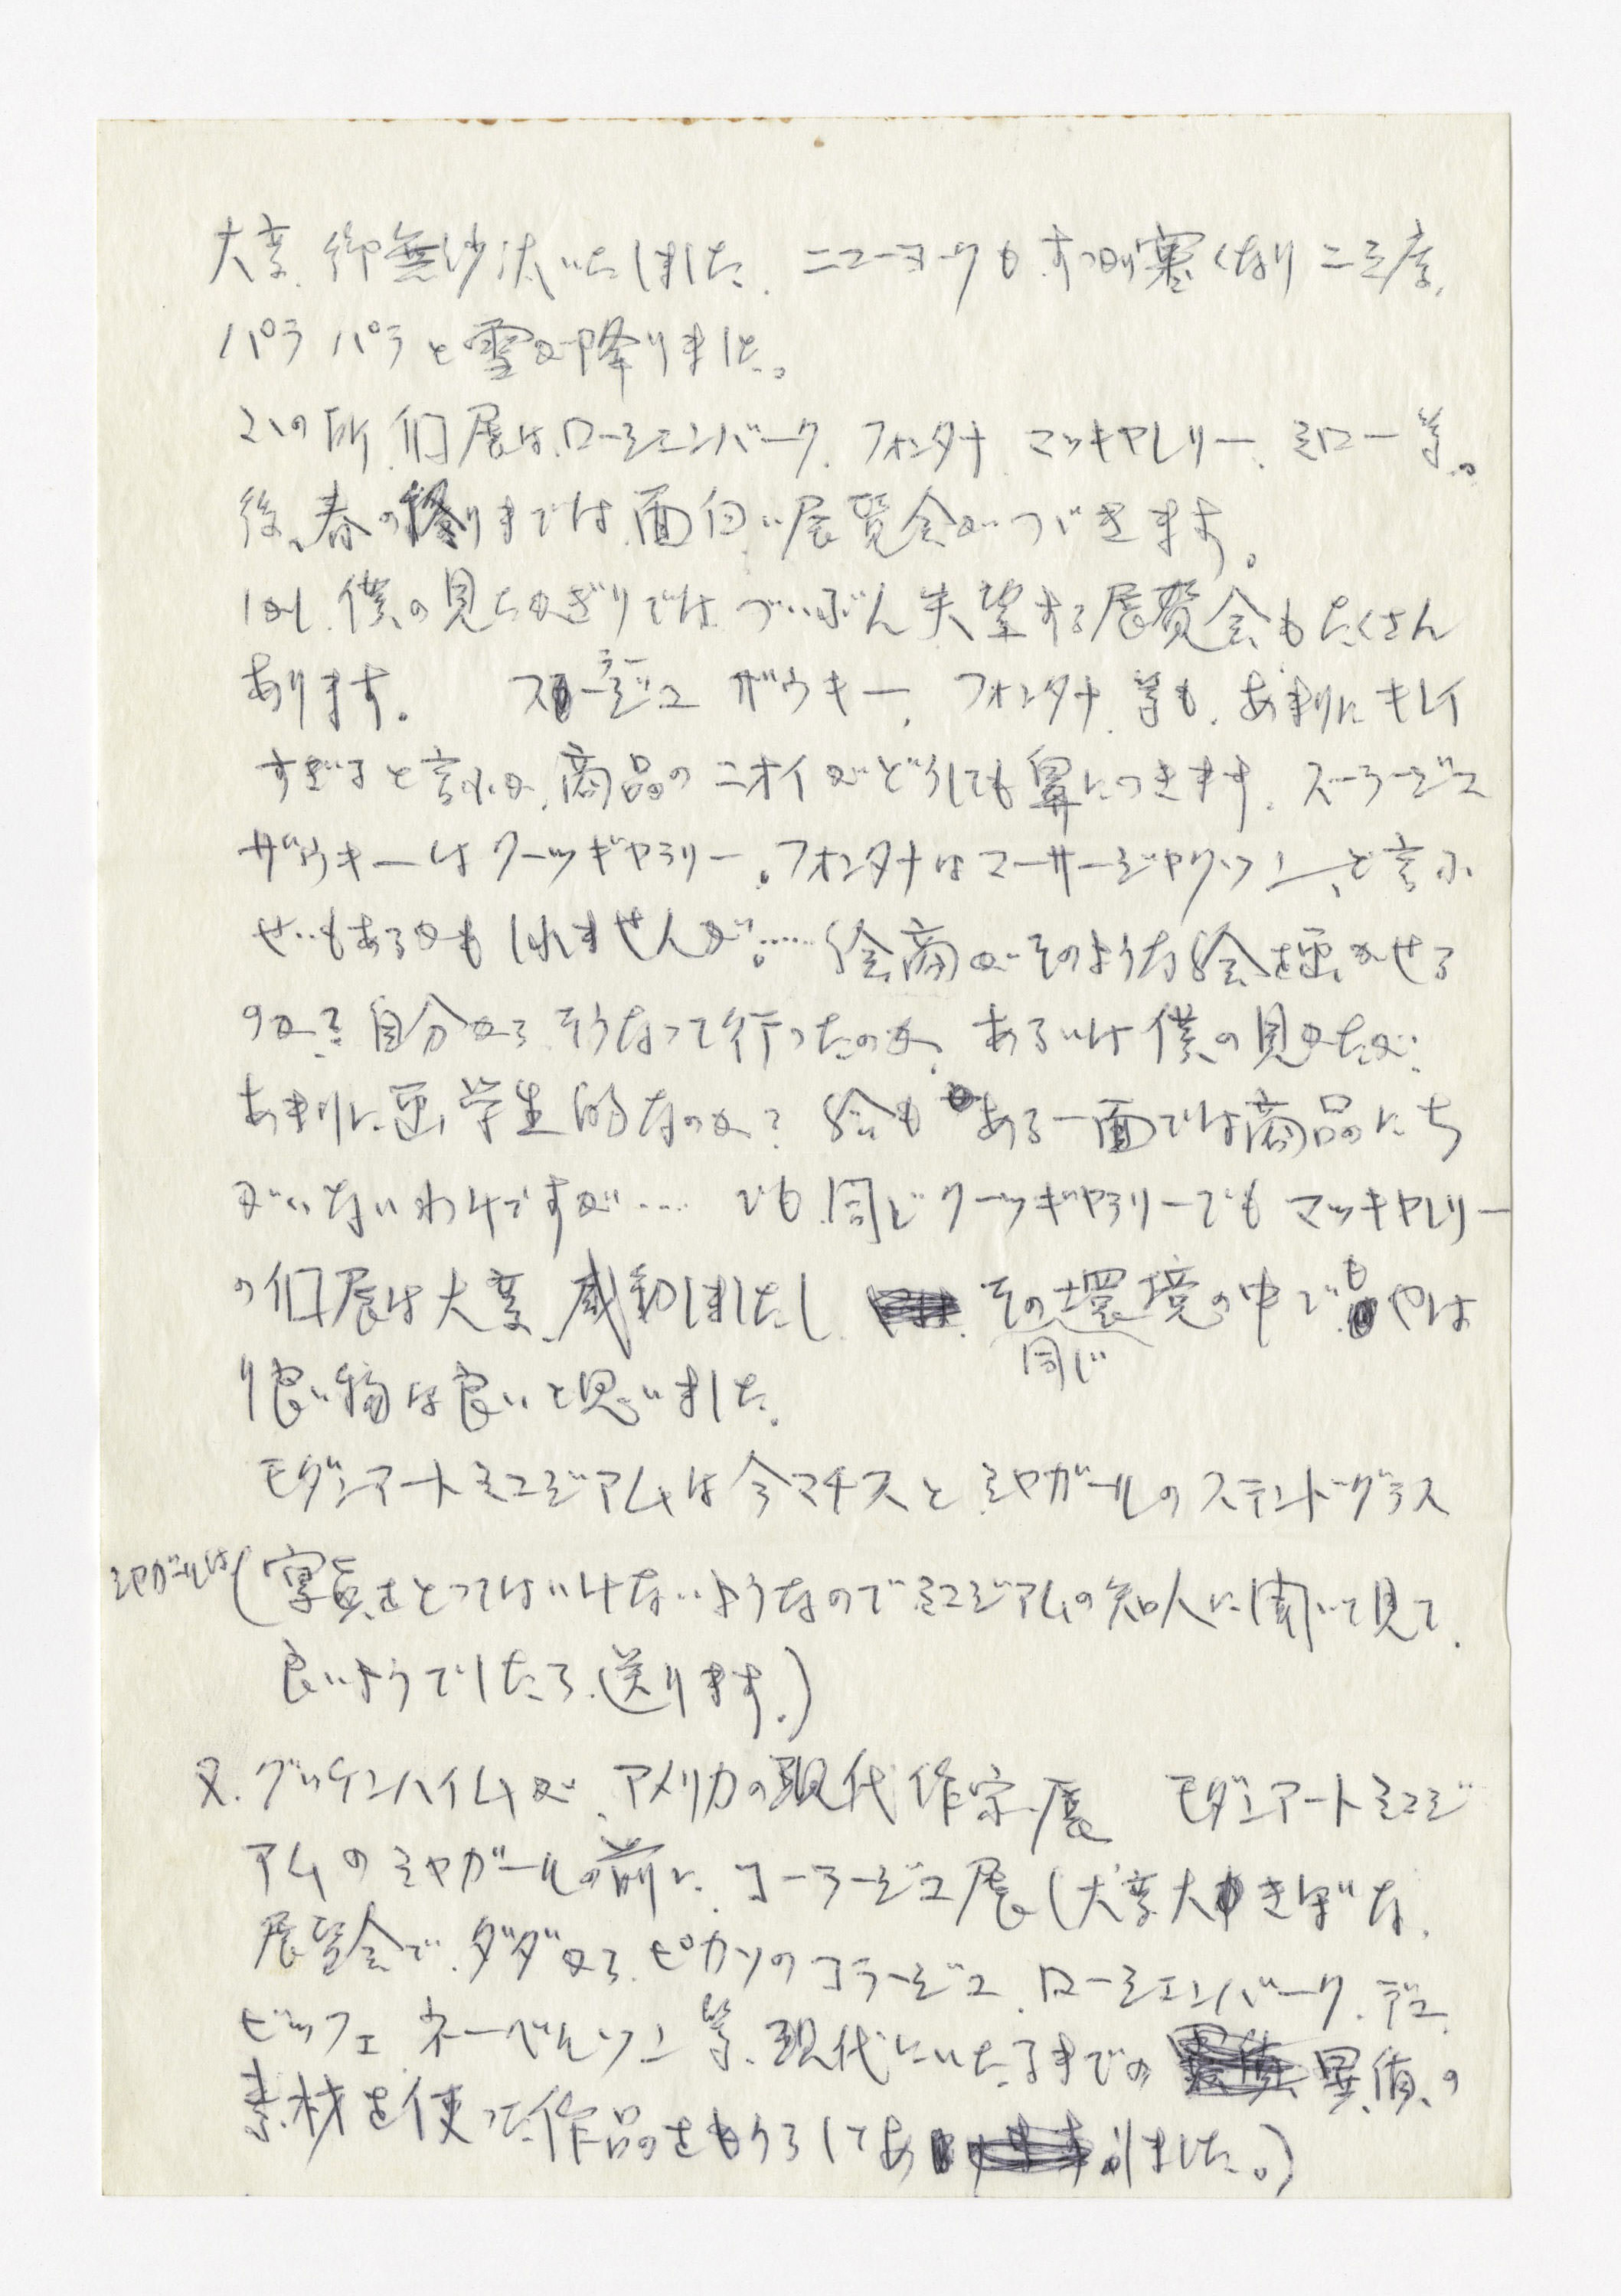 大変御無沙汰いたしました。ニューヨークもすっかり寒くなり二三度、
パラパラと雪が降りました。
この所、個展はローシェンバーク、フォンタナ、マッキャレリー、ミロー等。
後、春の終りまでは面白い展覧会がつづきます。
しかし、僕の見たかぎりでは、づいぶん失望する展覧会もたくさん
あります。 スーラージュ ザウキー、フォンタナ等も、あまりにキレイ
すぎると言ふか、商品のニオイがどうしても鼻につきます。スーラージュ
ザウキーはクーツギャラリー。フォンタナはマーサージャクソン、と言ふ
せいもあるかもしれませんが。……絵商がそのような絵を画かせる
のか?自分からそうなって行ったのか、あるいは僕の見かたが
あまりに画学生的なのか? 絵もある一面では商品にち
がいないわけですが…… でも、同じクーツギャラリーでもマッキャレリー
の個展は大変、感動しましたし、その同じ環境の中でもやは
り良い物は良いと思いました。
モダンアートミュジアムは今マチスとシャガールのステンドグラス
シャガールは(写真をとってはいけないようなのでミュジアムの知人に聞いて見て、
良いようでしたら送ります。)
又、グッケンハイムが、アメリカの現代作家展 モダンアートミュジ
アムのシャガールの前に、コーラージュ展(大変大きぼな、
展覧会で、ダダから、ピカソのコラージュ、ローシェンバーク、デュ
ビッフェ、ネーベルソン等、現代にいたるまでの異質の
素材を使った作品をもうらしてありました。)